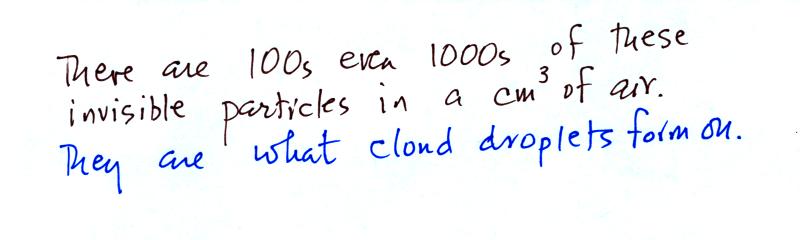 There are 100s even 1000s of these
invisible particles in a cm³ of air.
They are what cloud droplets form on.